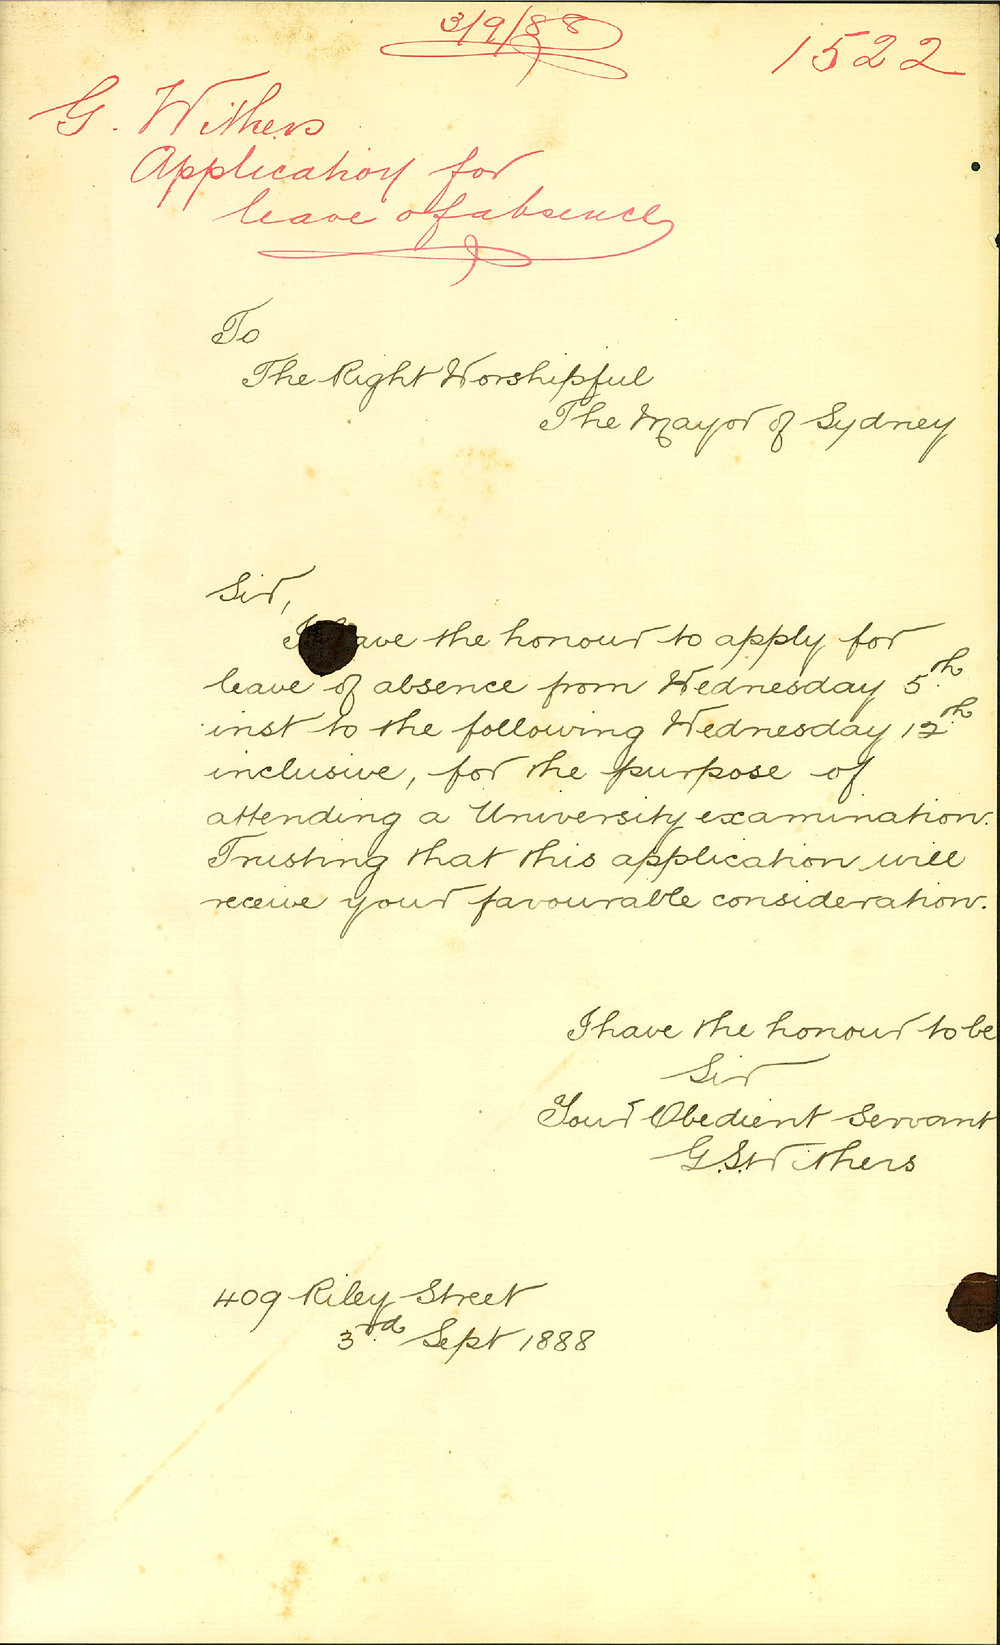 3/9/88
1522
G. Withers
Application for
leave of absence
To
The Right Worshipful
The Mayor of Sydney
Sir,
I have the honour to apply for
leave of absence from Wednesday 5th
inst to the following Wednesday 12th
inclusive, for the purpose of
attending a University examination.
Trusting that this application will
receive your favourable consideration.
I have the honour to be
Sir
Your Obedient Servant
G. S. Withers
409 Riley Street
3rd Sept 1888